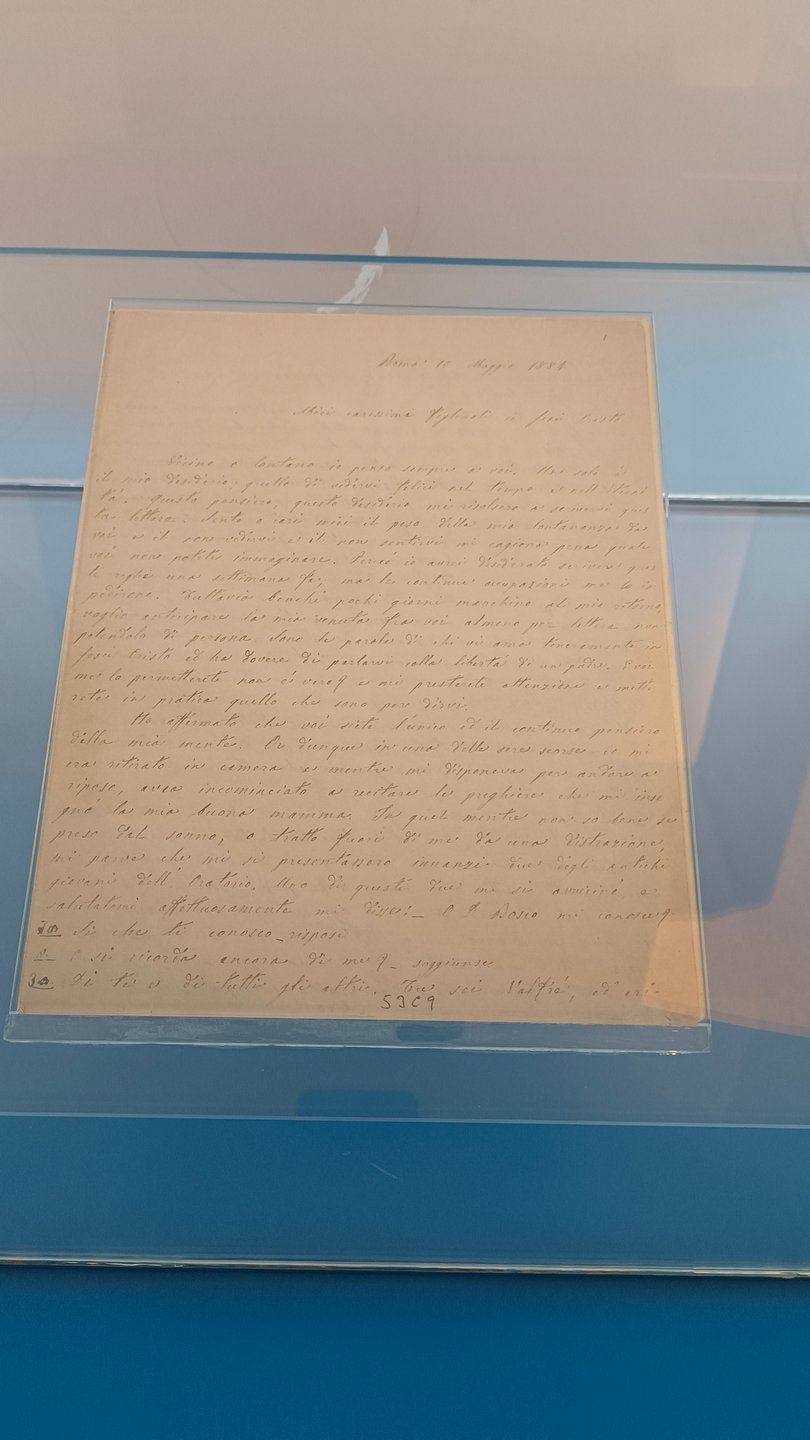 1
Roma 10 Maggio 1884
Miei carissimi figliuoli in Gesù Cristo
Vicino o lontano io penso sempre a voi. Un solo è
il mio desiderio, quello di vedervi felici nel tempo e nell'eterni
tà. Questo pensiero, questo desiderio mi risolsero a scrivervi ques
ta lettera. Sento o cari miei il peso della mia lontananza da
voi e il non vedervi e il non sentirvi mi cagiona pena quale
voi non potete immaginare. Perciò io avrei desiderato scrivere ques
te righe una settimana fa, ma le continue occupazioni me lo im
pedirono. Tuttavia benché pochi giorni manchino al mio ritorno,
voglio anticipare la mia venuta fra voi almeno per lettera non
potendolo di persona. Sono le parole di chi vi ama teneramente in
Gesù Cristo ed ha dovere di parlarvi colla libertà di un padre. E voi
me lo permetterete non è vero? e mi presterete attenzione e mette
rete in pratica quello che sono per dirvi.
Ho affermato che voi siete l'unico ed il continuo pensiero
della mia mente. Or dunque in una delle sere scorse io mi
era ritirato in camera e mentre mi disponeva per andare a
riposo, avea incominciato a recitare le preghiere che mi inse
gnò la mia buona mamma. In quel mentre non so bene se
preso dal sonno, o tratto fuori di me da una distrazione,
mi parve che mi si presentassero innanzi due degli antichi
giovani dell'Oratorio. Uno di questi due mi si avvicinò e
salutatomi affettuosamente mi disse: _ O D. Bosco mi conosce?
Si che ti conosco _ risposi
E si ricorda ancora di me? _ soggiunse
Di te e di tutti gli altri. Tu sei Valfré, ed eri
53C9